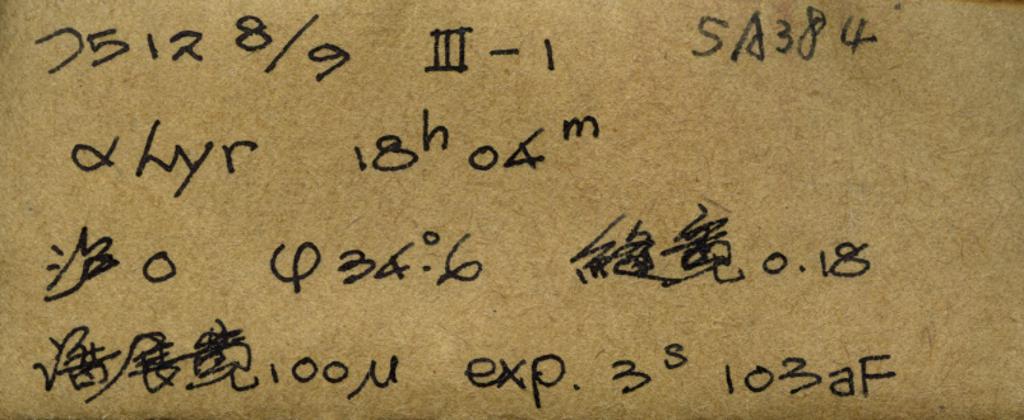 75128/9 III-1 SA384
αLyr 18h04m
沪0 φ34°.6 縫寬0.18
谱展寬100μ exp. 3s 103aF